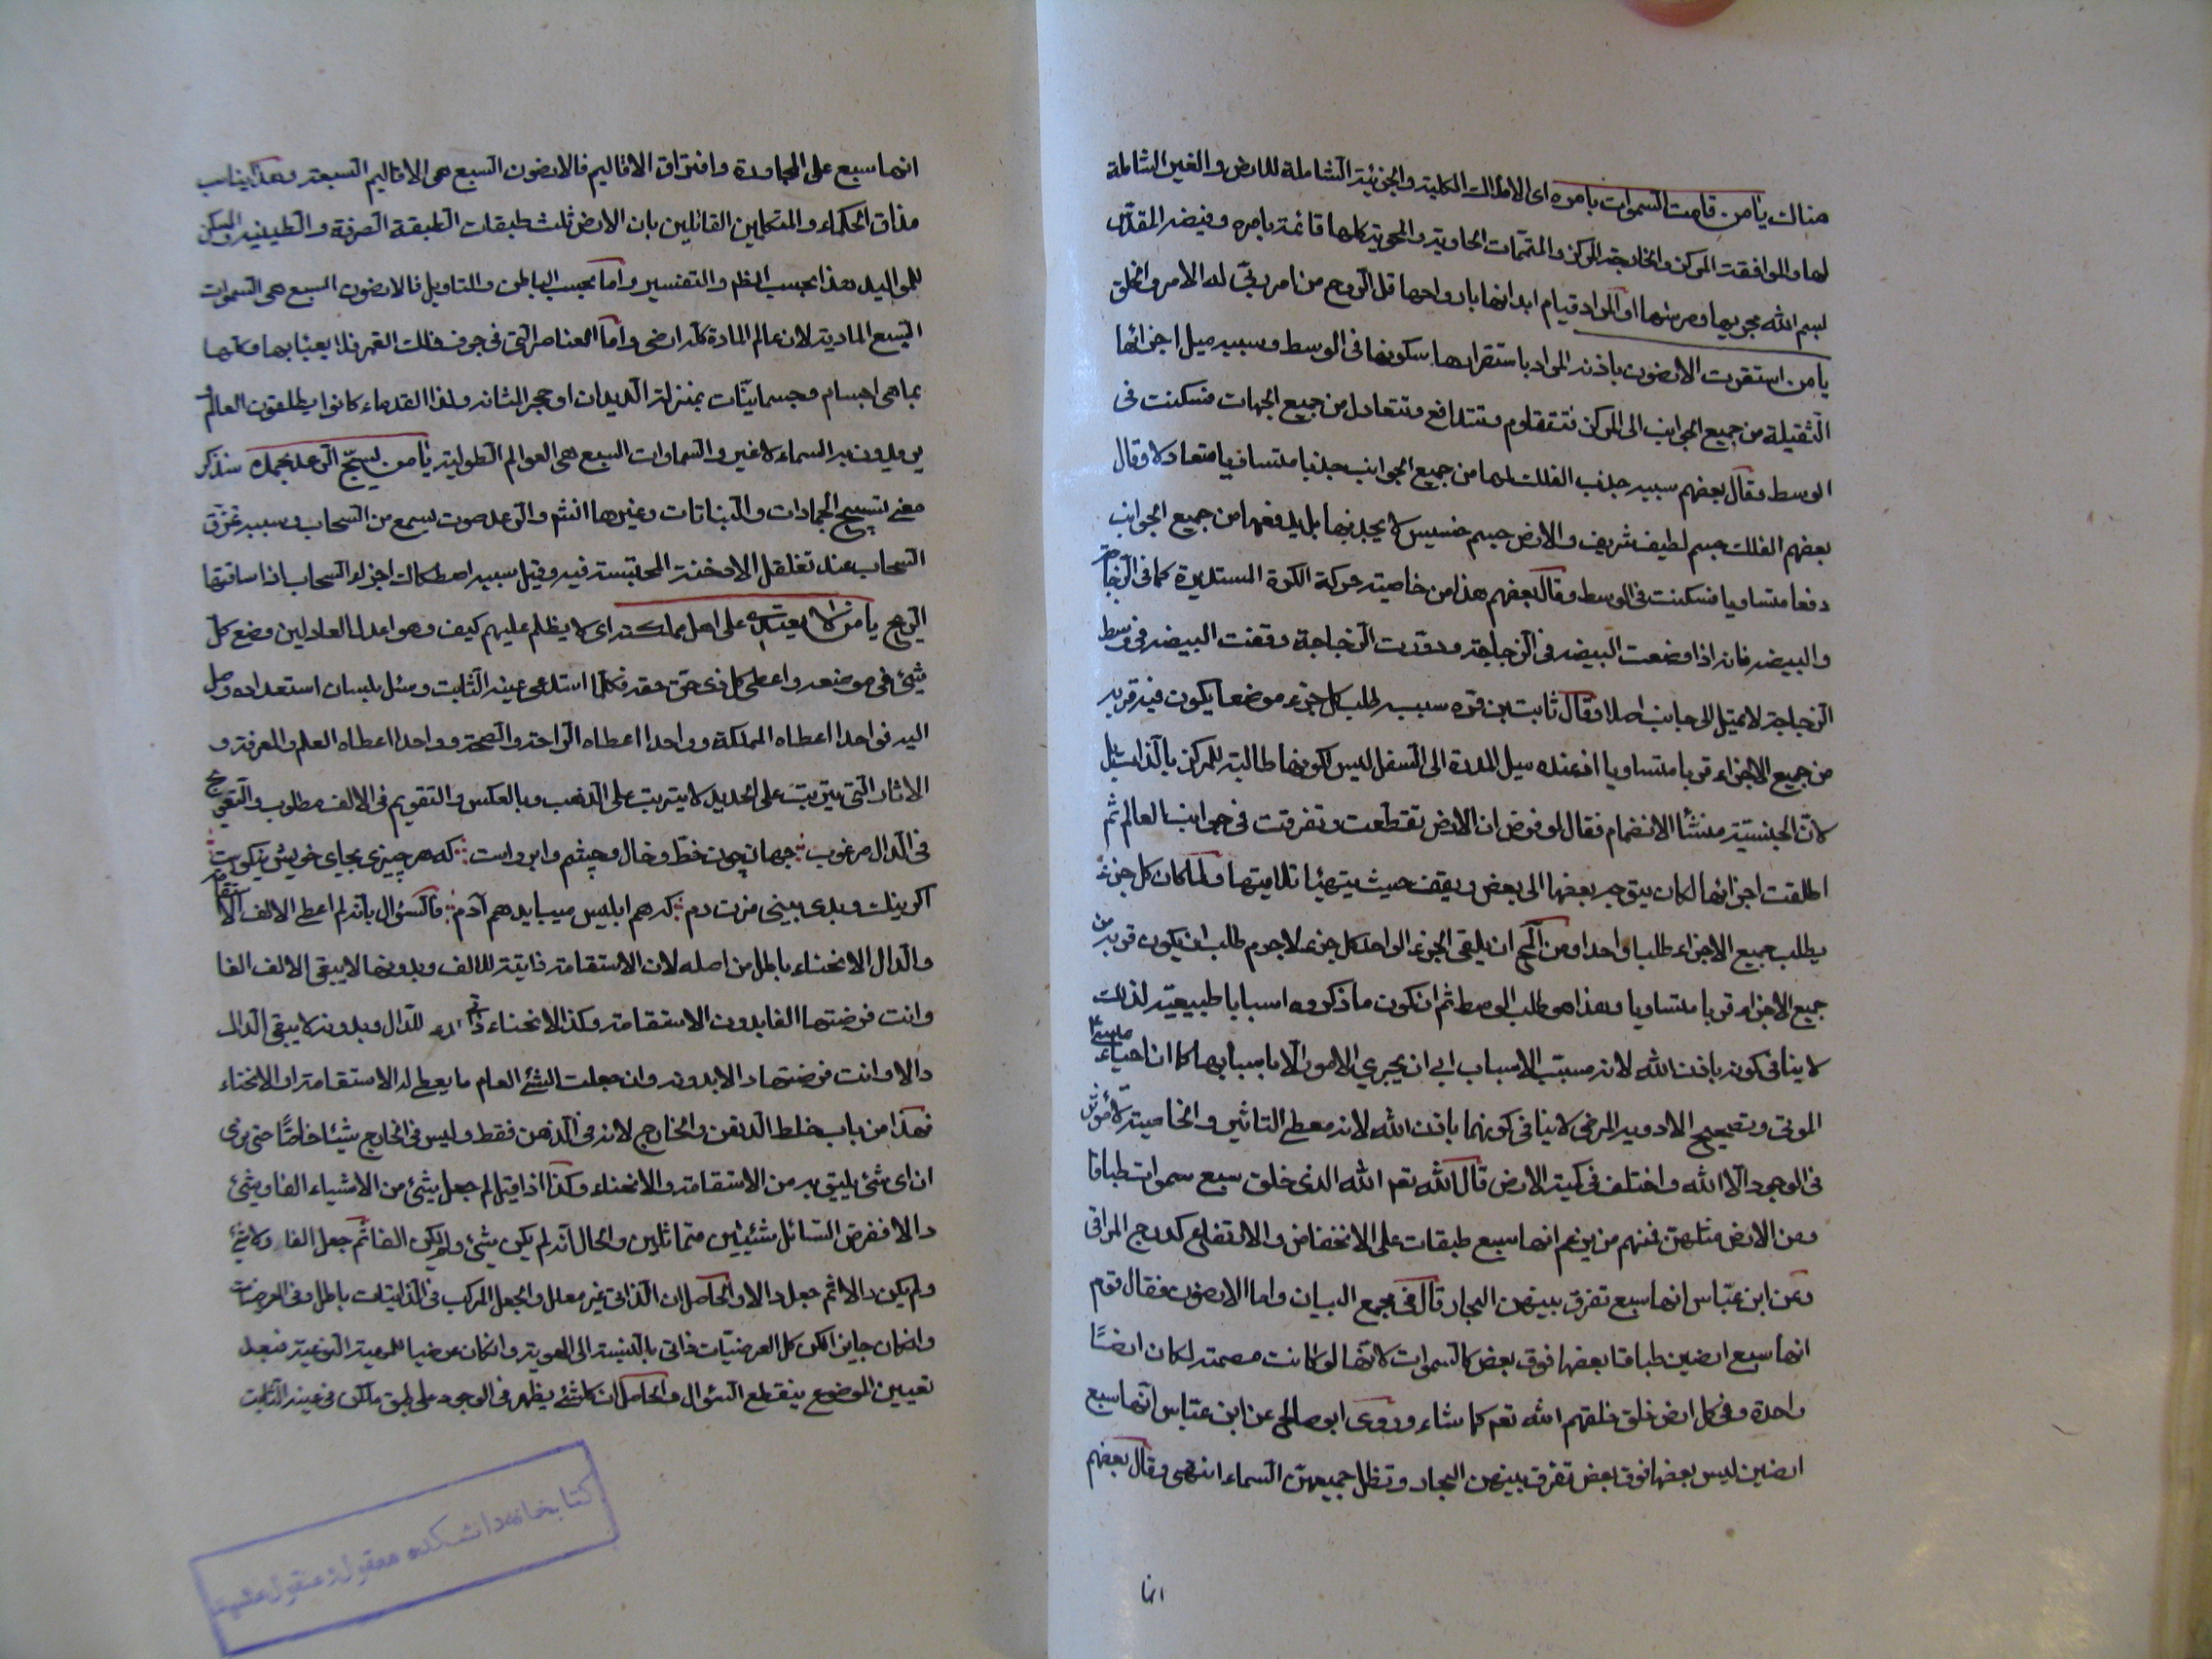 هناك يا من قامت السموات بامره اى الافلاك الكلية والجزئية الشاملة للارض والغير الشاملة
لها والموافقة المركز والخارجة المركز والمتممات الحاوية والمحوية كلها قائمة بامره وفيضه المقدس
بسم الله مجريها ومرسها او المراد قيام ابدانها بارواحها قل الروح من امر ربى له الامر والخلق
يا من استقرت الارضون باذنه المراد باستقرارها سكونها فى الوسط وسببه ميل اجزائها
الثقيلة من جميع الجوانب الى المركز فتتقاوم وتتدافع وتتعادل من جميع الجهات فسكنت فى
الوسط وقال بعضهم سببه جذب الفلك لها من جميع الجوانب جذبا متساويا متعادلا وقال
بعضهم الفلك جسم لطيف شريف والارض جسم خسيس لا يجذبها بل يدفعها من جميع الجوانب
دفعا متساويا فسكنت فى الوسط وقال بعضهم هذا من خاصية حركة الكرة المستديرة كما فى الزجاجة
والبيضه فانه اذا وضعت البيضه فى الزجاجة ودورت الزجاجة وقفت البيضه فى وسط
الزجاجة لا تميل الى جانب اصلا وقال ثابت بن قره سببه طلب كل جزء موضعا يكون فيه قربه
من جميع الاجزاء قربا متساويا اذ عنده ميل المدرة الى السفل ليس لكونها طالبة للمركز بالذات بل
لان الجنسية منشأ الانضمام فقال لو فرض ان الارض تقطعت وتفرقت فى جوانب العالم ثم
اطلقت اجزائها لكان يتوجه بعضها الى بعض ويقف حيث يتهيأ تلاقيها ولما كان كل جزء
يطلب جميع الاجزاء طلبا واحدا ومن المحال ان يلقى الجزء الواحد كل جزء لا جرم طلب ان يكون قربه من
جميع الاجزاء قربا متساويا وهذا هو طلب الوسط ثم ان كون ما ذكروه اسبابا طبيعية لذلك
لا ينافى كونه باذن الله لانه مسبب الاسباب ابى ان يجري الامور الا باسبابها كما ان احياء عيسى
الموتى وتصحيح الادوية المرضى لا ينافى كونهما باذن الله لانه معطى التاثير والخاصية لا مؤثر
فى الوجود الا الله واختلف فى كمية الارض قال الله تعم الله الذى خلق سبع سموات طباقا
ومن الارض مثلهن فمنهم من يزعم انها سبع طبقات على الانخفاض والارتفاع كدرج المراقى
وعن ابن عباس انها سبع تفرق بينهن البحار قال فى مجمع البيان واما الارضون فقال قوم
انها سبع ارضين طباقا بعضها فوق بعض كالسموات لانها لو كانت مصمتة لكان ارضا
واحدة وفى كل ارض خلق خلقهم الله تعم كما شاء وروى ابو صالح عن ابن عباس انها سبع
ارضين ليس بعضها فوق بعض تفرق بينهن البحار وتظل جميعهن السماء انتهى وقال بعضهم
انها
انها سبع على المجاورة وافتراق الاقاليم فالارضون السبع هى الاقاليم السبعة وهذا يناسب
مذاق الحكماء والمتكلمين القائلين بان الارض ثلث طبقات الطبقة الصرفة والطينية والمسكن
للمواليد هذا بحسب الظهر والتفسير واما بحسب الباطن والتاويل فالارضون السبع هى السموات
السبع المادية لان عالم المادة كله اراضى واما العناصر التى فى جوف فلك القمر فلا يعبأ بها فكانها
بما هى اجسام وجسمانيات بمنزلة الديدان او حجر المثانة ولذا القدماء كانوا يطلقون العالم و
يريدون به السماء لا غير والسماوات السبع هى العوالم الطولية يا من يسبح الرعد بحمده سنذكر
معنى تسبيح الجمادات والنباتات وغيرها انشم والرعد صوت يسمع من السحاب وسببه تمزق
السحاب عند تغلغل الادخنة المحتبسة فيه وقيل سببه اصطكاك اجزاء السحاب اذا ساقتها
الريح يا من لا يعتدى على اهل مملكته اى لا يظلم عليهم كيف وهو اعدل العادلين وضع كل
شئ فى موضعه واعطى كل ذى حق حقه فكلما استدعى عينه الثابت وسئل بلسان استعداده وصل
اليه فواحدا اعطاه المملكة وواحدا اعطاه الراحة والصحة وواحدا اعطاه العلم والمعرفة و
الاثار التى يترتب على الحديد لا يترتب على الذهب وبالعكس والتقويم فى الالف مطلوب والتعويج
فى الدال مرغوب جهان چون خط وخال وچشم وابرواست كه هر چيزى بجاى خويش نيكوست
اگر نيك وبدى بينى مزن دم كه هم ابليس ميبايد هم آدم فالسؤال بانه لم اعطى الالف الاستقامة
والدال الانحناء باطل من اصله لان الاستقامة ذاتية للالف وبدونها لا يبقى الالف الفا
وانت فرضتها الفا بدون الاستقامة وكذا الانحناء ذاتية للدال وبدونه لا يبقى الدال
دالا وانت فرضتها دالا بدونه وان جعلت الشئ العام ما يعطى له الاستقامة او الانحناء
فهذا من باب خلط الذهن والخارج لانه فى الذهن فقط وليس فى الخارج شيئا خاصا حتى يرى
ان اى شئ يليق به من الاستقامة والانحناء وكذا اذا قيل لم جعل شئ من الاشياء الفا وشئ
دالا ففرض السائل شيئين متماثلين والحال انه لم يكن شئ ولم يكن الفا ثم جعل الفا ولا شئ
ولم يكن دالا ثم جعل دالا والحاصل ان الذاتى غير معلل والجعل المركب فى الذاتيات باطل وفى العرضيات
وان كان جايز لكن كل العرضيات ذاتى بالنسبة الى الهوية وان كان عرضيا للمهية النوعية فبعد
تعيين الموضوع ينقطع السؤال والحاصل ان كل شئ يظهر فى الوجود على طبق ما كان فى عينه الثابت
كتابخانه دانشكده معقول و منقول مشهد